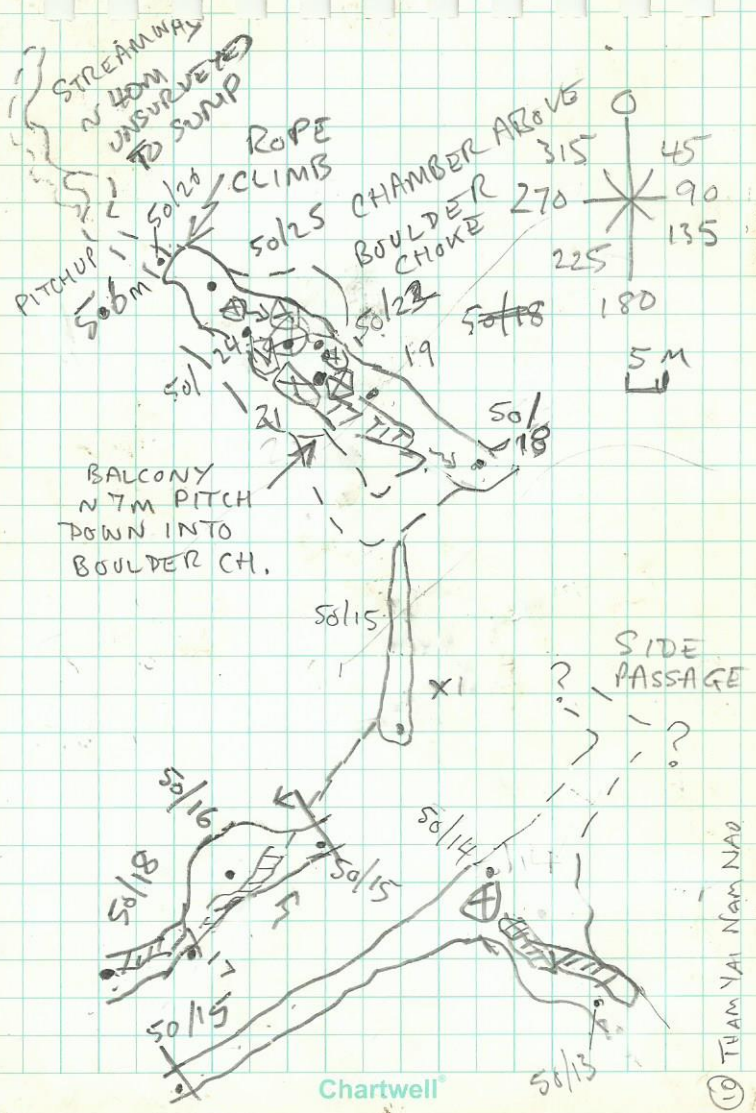 STREAMWAY
~ 40M
UNSURVEYED
TO SUMP
ROPE
CLIMB
CHAMBER ABOVE
BOULDER
CHOKE
0
315
45
270
90
225
135
180
5 M
PITCH UP
5.6m
50/26
50/25
50/23
50/18
19
50/
18
24
50/
21
BALCONY
~ 7M PITCH
DOWN INTO
BOULDER CH.
50/15
X1
SIDE
PASSAGE
?
?
50/16
50/15
50/14
50/18
17
50/15
50/13
Chartwell
10 THAM YAI NAM NAO